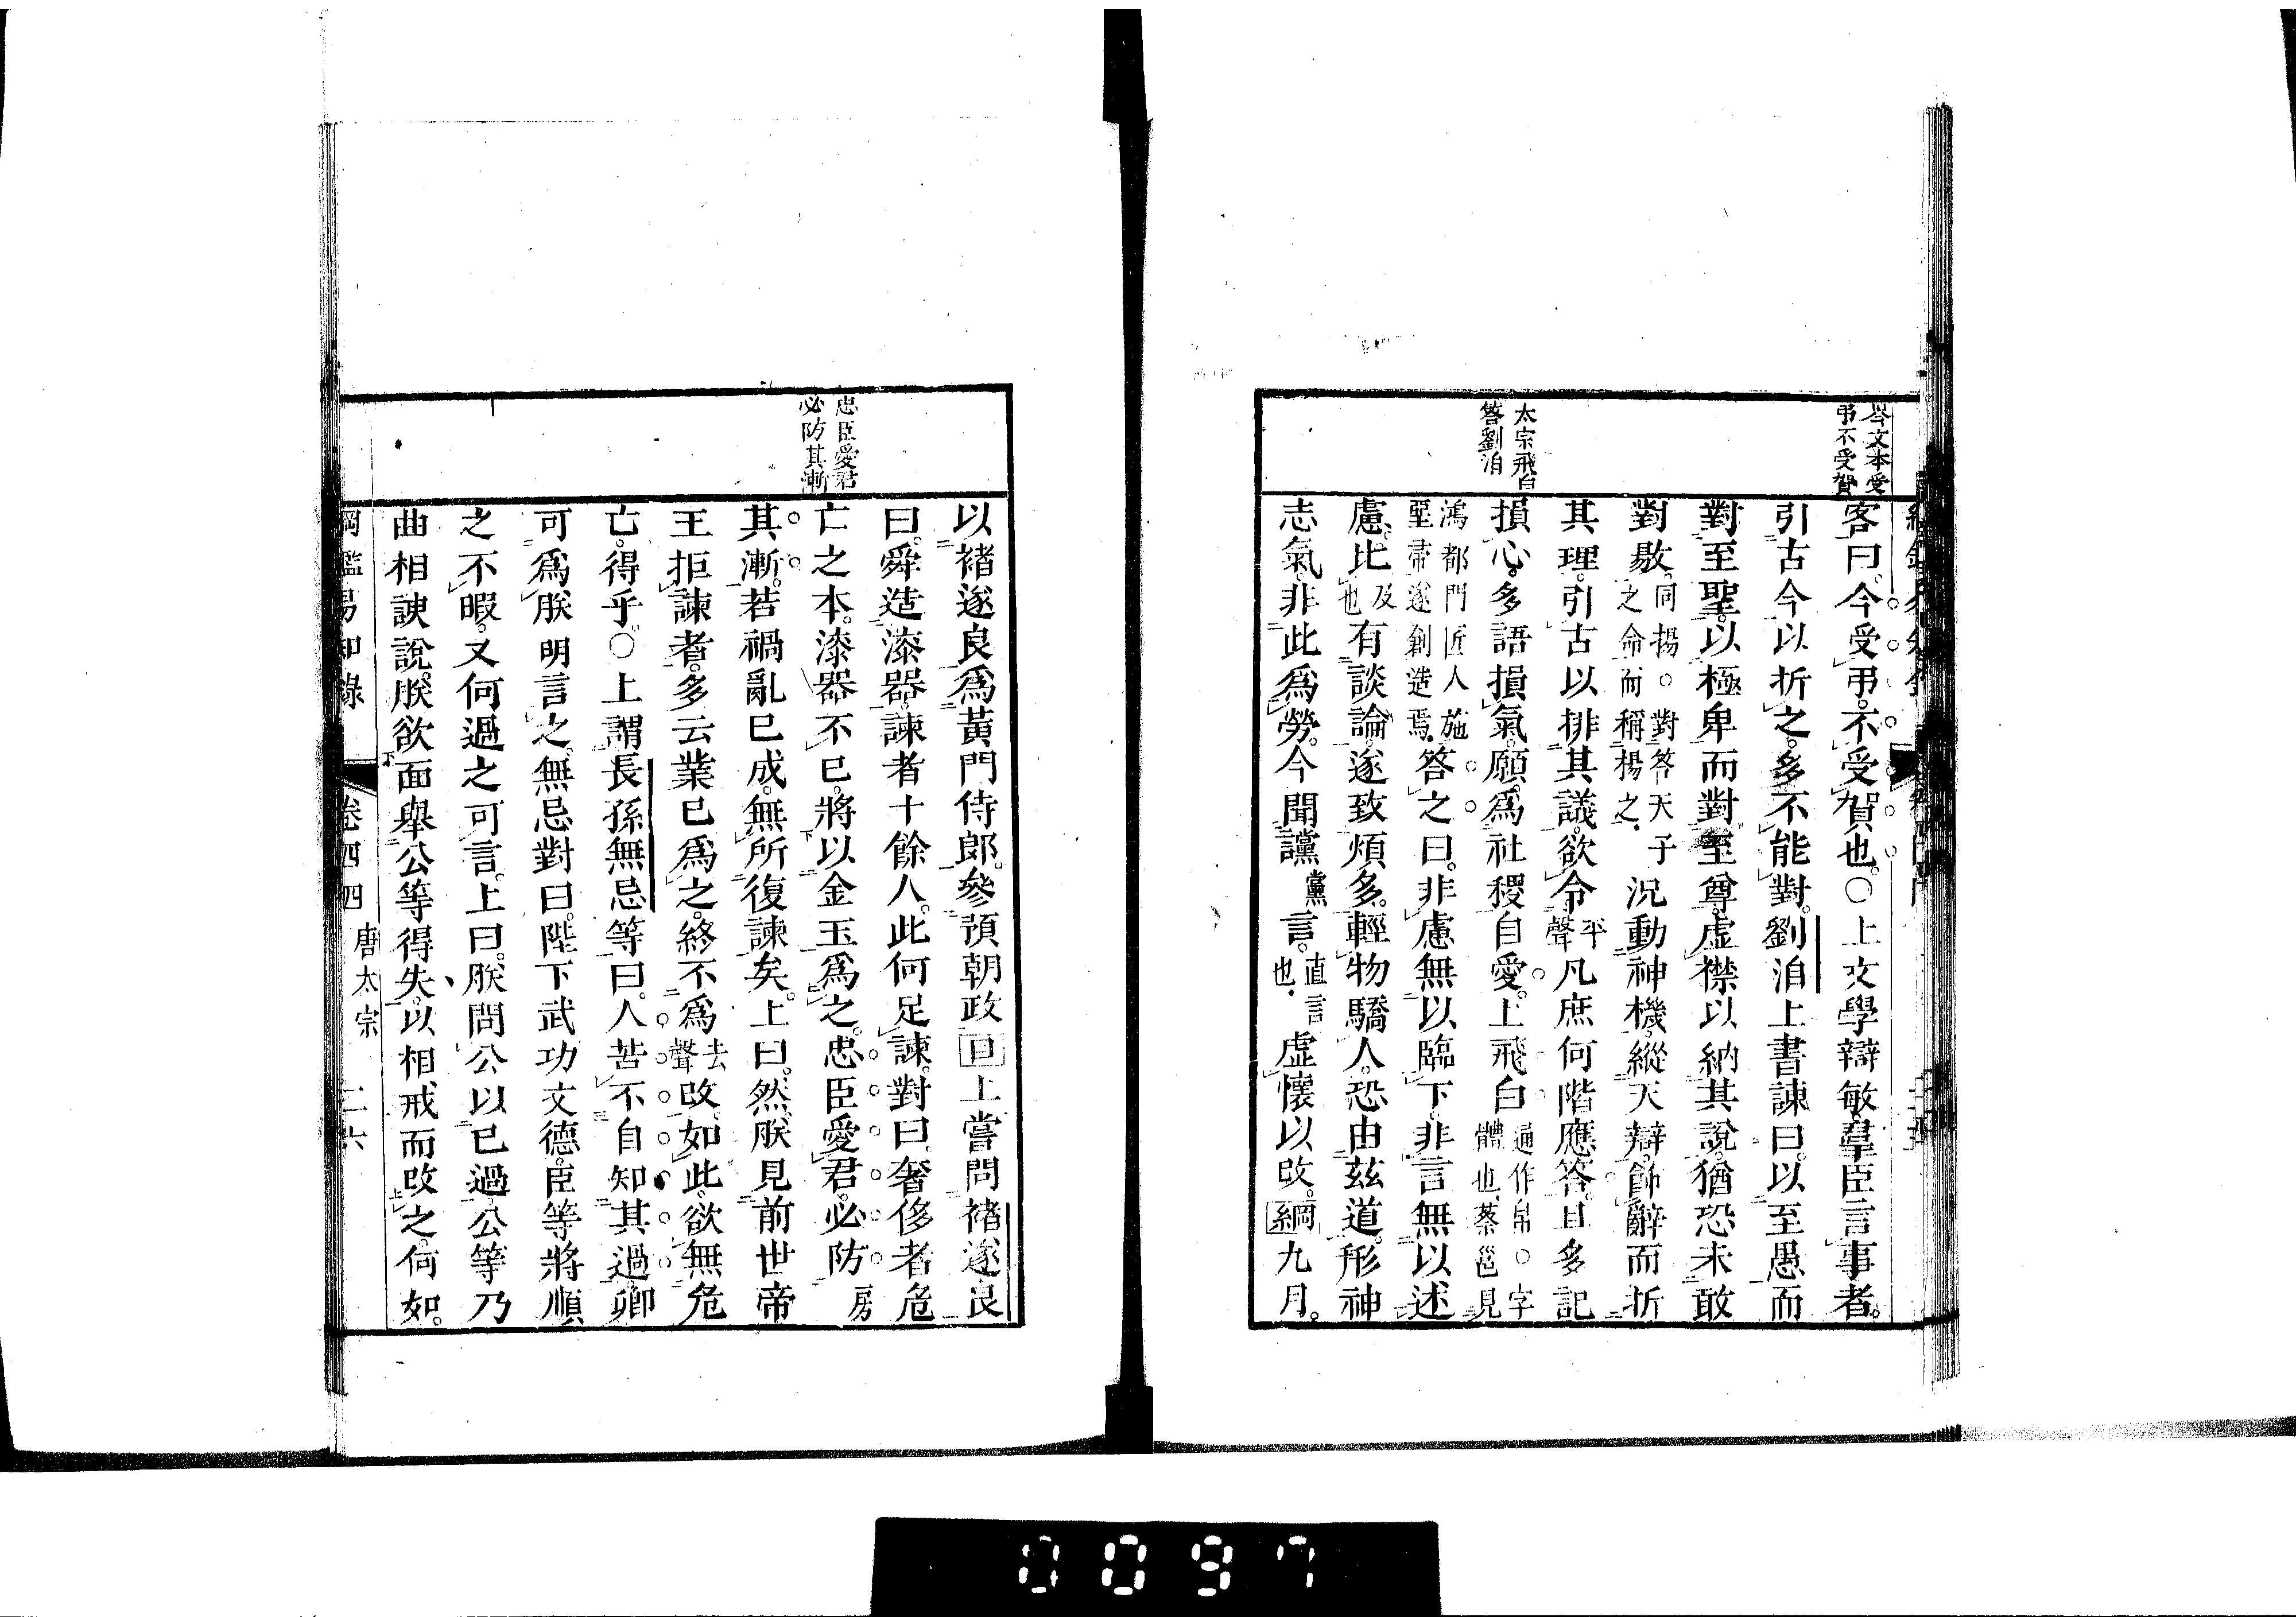 岑文本受
弔不受賀
客曰。今受弔。不受賀也。○上文學辯敏。羣臣言事者。
引古今以折之。多不能對。劉洎上書諫曰。以至愚而
對至聖。以極卑而對至尊。虛襟以納其說。猶恐未敢
對敭。同揚。○對答天子之命而稱揚之。況動神機。縱天辯。飾辭而折
其理。引古以排其議。欲令平聲凡庶何階應答。且多記
太宗飛白
答劉洎
損心。多語損氣。願爲社稷自愛。上飛白通作帛。○字體也。蔡邕見
鴻都門匠人施堊帚遂創造焉。答之曰。非慮無以臨下。非言無以述
慮。比及也有談論。遂致煩多。輕物驕人。恐由玆道。形神
志氣。非此爲勞。今聞讜黨言。直言也。虛懷以改。綱九月。
以褚遂良爲黃門侍郎。參預朝政目上嘗問褚遂良
曰。舜造漆器。諫者十餘人。此何足諫。對曰。奢侈者危
忠臣愛君
必防其漸
亡之本。漆器不已。將以金玉爲之。忠臣愛君。必防房
其漸。若禍亂已成。無所復諫矣。上曰。然。朕見前世帝
王拒諫者。多云業已爲之。終不爲去聲改。如此。欲無危
亡。得乎。○上謂長孫無忌等曰。人苦不自知其過。卿
可爲朕明言之。無忌對曰。陛下武功文德。臣等將順
之不暇。又何過之可言。上曰。朕問公以己過。公等乃
曲相諛說。朕欲面舉公等得失。以相戒而改之。何如。
綱鑑易知錄 卷四四 唐太宗 二六